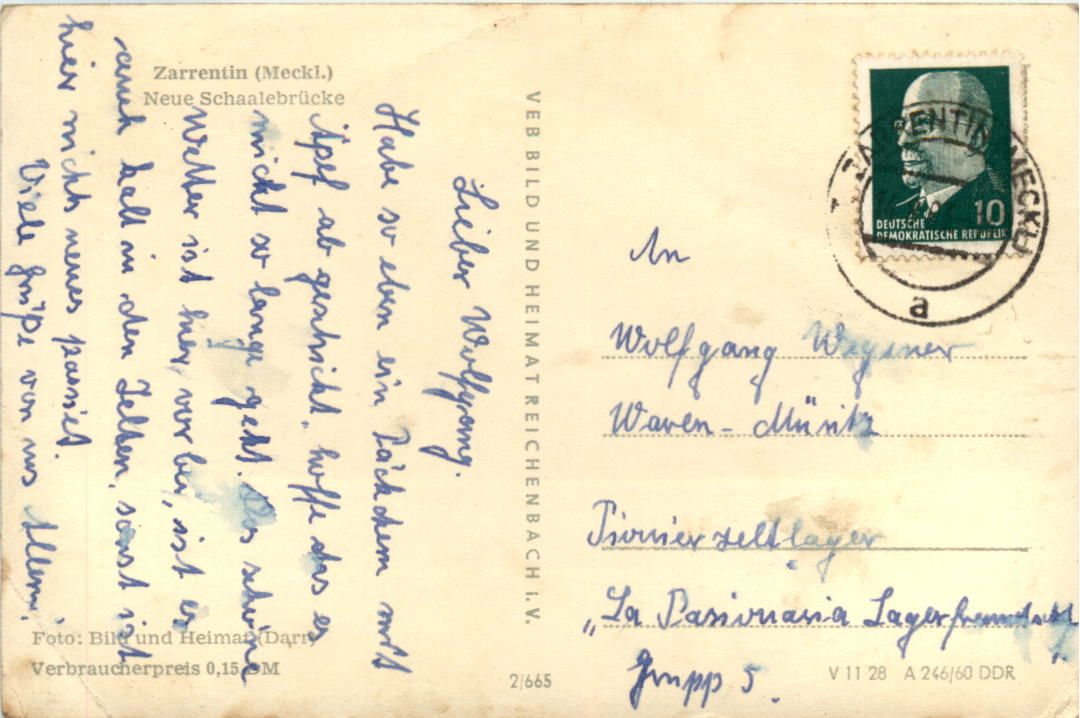 Zarrentin (Meckl.)
Neue Schaalebrücke
Lieber Wolfgang.
Habe so eben ein Päckchem mit
Äpfel ab geschickt, hoffe das es
nicht so lange geht. Das schöne
Wetter ist hier vorbei, ist es
auch kalt in den Zelten, sonst ist
hier nichts neues passiet.
Viele Grüße von uns Allen!
Foto: Bild und Heimat (Darr)
Verbraucherpreis 0,15 DM
VEB BILD UND HEIMAT REICHENBACH i. V.
2/665
DEUTSCHE
DEMOKRATISCHE REPUBLIK
10
ZARRENTIN (MECKL)
a
An
Wolfgang Wegener
Waren - Müritz
Pionierzeltlager
„La Pasionaria Lagerfreundschaft
Grupp 5.
V 11 28 A 246/60 DDR